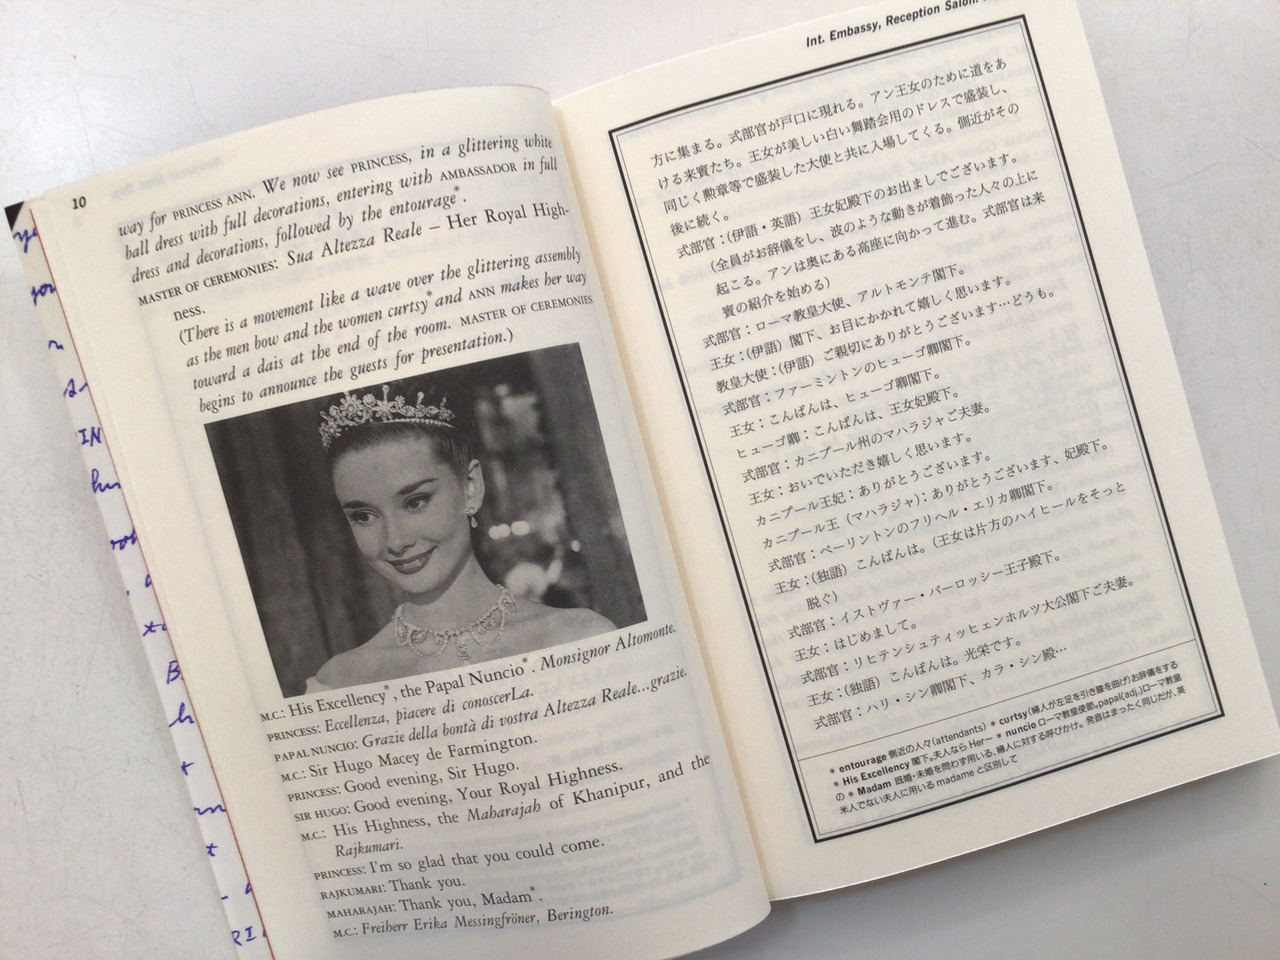 10
way for PRINCESS ANN. We now see PRINCESS, in a glittering white
ball dress with full decorations, entering with AMBASSADOR in full
dress and decorations, followed by the entourage*.
MASTER OF CEREMONIES: Sua Altezza Reale – Her Royal High-
ness.
(There is a movement like a wave over the glittering assembly
as the men bow and the women curtsy* and ANN makes her way
toward a dais at the end of the room. MASTER OF CEREMONIES
begins to announce the guests for presentation.)
M.C.: His Excellency*, the Papal Nuncio*. Monsignor Altomonte.
PRINCESS: Eccellenza, piacere di conoscerLa.
PAPAL NUNCIO: Grazie della bontà di vostra Altezza Reale...grazie.
M.C.: Sir Hugo Macey de Farmington.
PRINCESS: Good evening, Sir Hugo.
SIR HUGO: Good evening, Your Royal Highness.
M.C.: His Highness, the Maharajah of Khanipur, and the
Rajkumari.
PRINCESS: I'm so glad that you could come.
RAJKUMARI: Thank you.
MAHARAJAH: Thank you, Madam*.
M.C.: Freiherr Erika Messingfröner, Berington.
Int. Embassy, Reception Salon
方に集まる。式部官が戸口に現れる。アン王女のために道をあ
ける来賓たち。王女が美しい白い舞踏会用のドレスで盛装し、
同じく勲章等で盛装した大使と共に入場してくる。側近がその
後に続く。
式部官：(伊語・英語) 王女妃殿下のお出ましでございます。
(全員がお辞儀をし、波のような動きが着飾った人々の上に
起こる。アンは奥にある高座に向かって進む。式部官は来
賓の紹介を始める)
式部官：ローマ教皇大使、アルトモンテ閣下。
王女：(伊語) 閣下、お目にかかれて嬉しく思います。
教皇大使：(伊語) ご親切にありがとうございます…どうも。
式部官：ファーミントンのヒューゴ卿閣下。
王女：こんばんは、ヒューゴ卿閣下。
ヒューゴ卿：こんばんは、王女妃殿下。
式部官：カニプール州のマハラジャご夫妻。
王女：おいでいただき嬉しく思います。
カニプール王妃：ありがとうございます。
カニプール王 (マハラジャ)：ありがとうございます、妃殿下。
式部官：ベーリントンのフリヘル・エリカ卿閣下。
王女：(独語) こんばんは。(王女は片方のハイヒールをそっと
脱ぐ)
式部官：イストヴァー・バーロッシー王子殿下。
王女：はじめまして。
式部官：リヒテンシュティッヒェンホルツ大公閣下ご夫妻。
王女：(独語) こんばんは。光栄です。
式部官：ハリ・シン卿閣下、カラ・シン殿…
* entourage 側近の人々(attendants) * curtsy (婦人が左足を引き膝を曲げ)お辞儀をする
* His Excellency 閣下。夫人なら Her〜 * nuncio ローマ教皇使節。papal(adj.)ローマ教皇
の * Madam 既婚・未婚を問わず用いる、婦人に対する呼びかけ。発音はまったく同じだが、英
米人でない夫人に用いる madame と区別して
IN